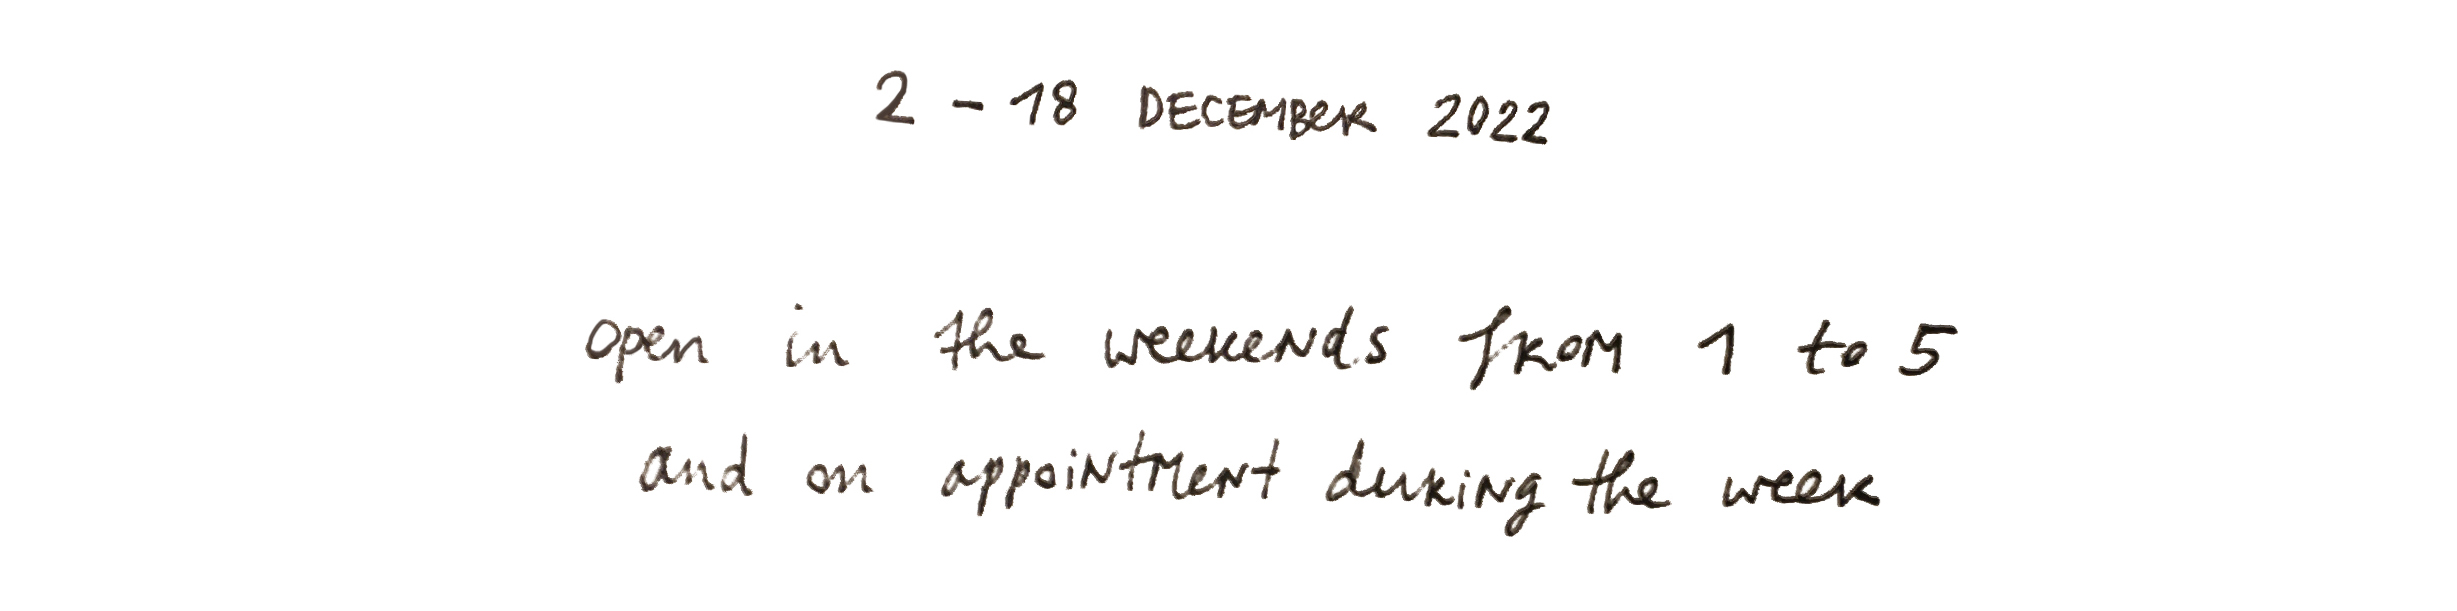 2 - 18 DECEMBeR 2022
open in the weekends from 1 to 5
and on appointment during the week